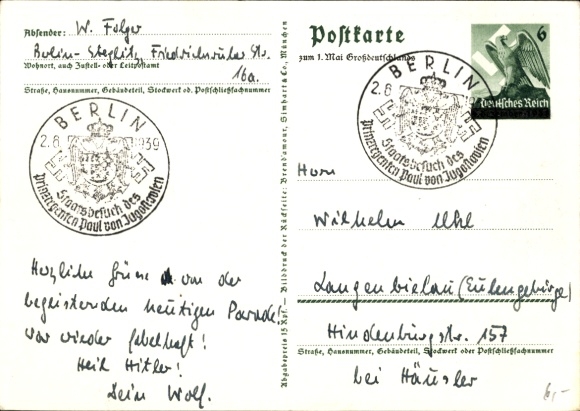 Absender: W. Folger
Berlin-Steglitz, Friedrichsruher Str.
Wohnort, auch Zustell- oder Leitpostamt
16a.
Straße, Hausnummer, Gebäudeteil, Stockwerk od. Postschließfachnummer
BERLIN
2.6. 1939
Staatsbesuch des
Prinzregenten Paul von Jugoslavien
Herzliche Grüsse von der
begeisternden heutigen Parade!
War wieder fabelhaft!
Heil Hitler!
Dein Wolf.
Abgabepreis 15 Rpf. — Bilddruck der Rückseite: Brend'amour, Simhart & Co., München
Postkarte
zum 1. Mai Großdeutschlands
6
Deutsches Reich
BERLIN
2.6
Staatsbesuch des
Prinzregenten Paul von Jugoslavien
Herrn
Wilhelm Uhl
Langenbielau (Eulengebirge)
Hindenburgstr. 157
Straße, Hausnummer, Gebäudeteil, Stockwerk oder Postschließfachnummer
bei Häusler
6,-